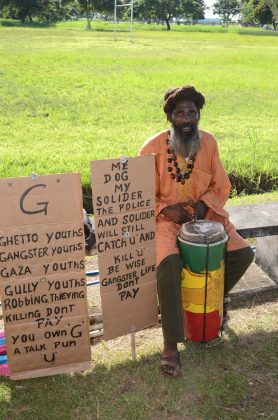 "G"
GHETTO YOUTHS
GANGSTER YOUTHS
GAZA YOUTHS
GULLY YOUTHS
ROBBING, THEVING
KILLING DONT
PAY,
YOU OWN G
A TALK PUN
'U'
ME
DOG
MY
SOLIDER
THE POLICE
AND SOLIDER
WILL STILL
CATCH 'U' AND
KILL 'U'
BE WISE
GANGSTER LIFE
DONT
PAY